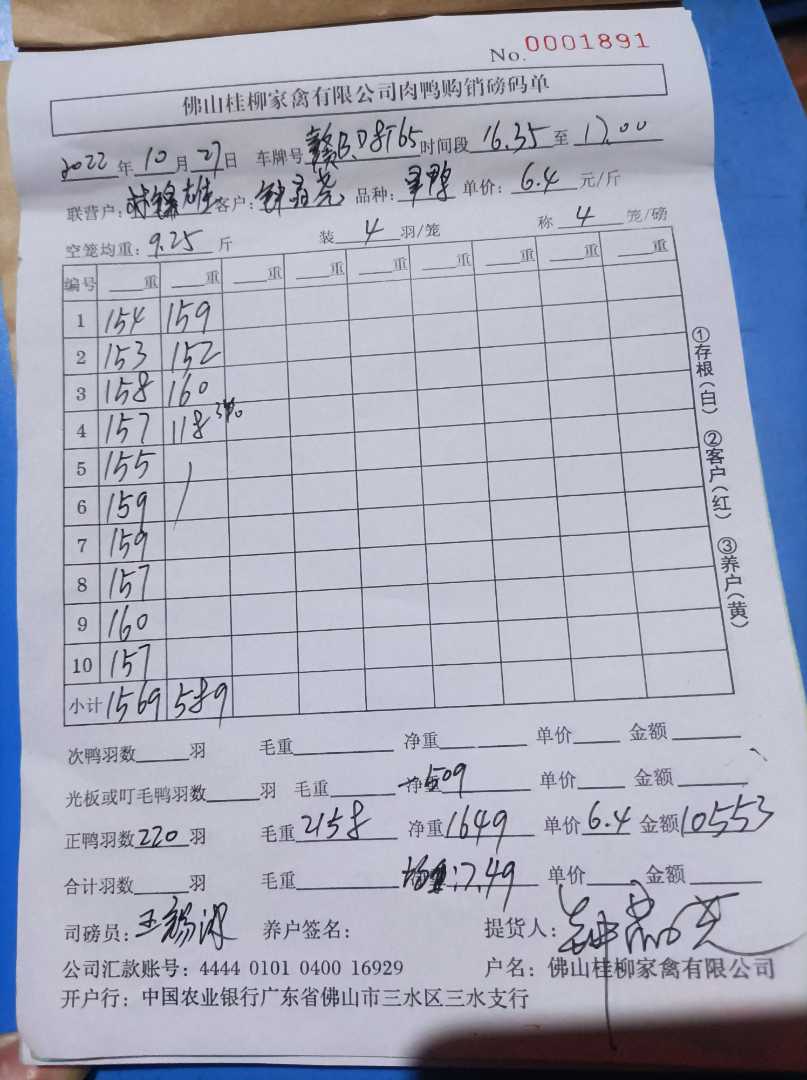 No. 0001891
佛山桂柳家禽有限公司肉鸭购销磅码单
2022 年 10 月 27 日 车牌号 赣B.D8T65 时间段 16.35 至 17.00
联营户: 雄 客户: 钟 品种: 单价: 6.4 元/斤
空笼均重: 9.25 斤 装 4 羽/笼 称 4 笼/磅
编号 重 重 重 重 重 重 重 重 重
1 154 159
2 153 152
3 158 160
4 157 118
5 155
6 159
7 159
8 157
9 160
10 157
小计 1569 589
①存根(白) ②客户(红) ③养户(黄)
次鸭羽数 羽 毛重 净重 单价 金额
光板或叮毛鸭羽数 羽 毛重 净重 509 单价 金额
正鸭羽数 220 羽 毛重 2158 净重 1649 单价 6.4 金额 10553
合计羽数 羽 毛重 均重:7.49 单价 金额
司磅员: 王 养户签名: 提货人: 钟
公司汇款账号: 4444 0101 0400 16929 户名: 佛山桂柳家禽有限公司
开户行: 中国农业银行广东省佛山市三水区三水支行